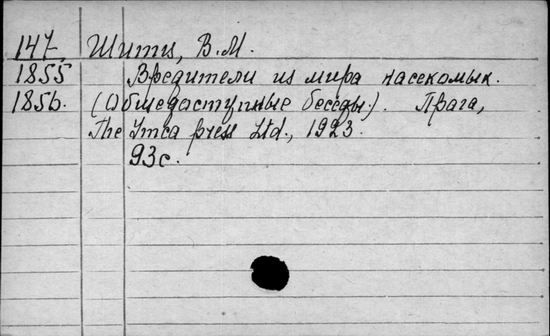 147 Шитц, В.М.
1855 Вредители из мира насекомых.
1856. (Общедоступные беседы.). Прага,
The Ymca press Ltd., 1923.
93с.